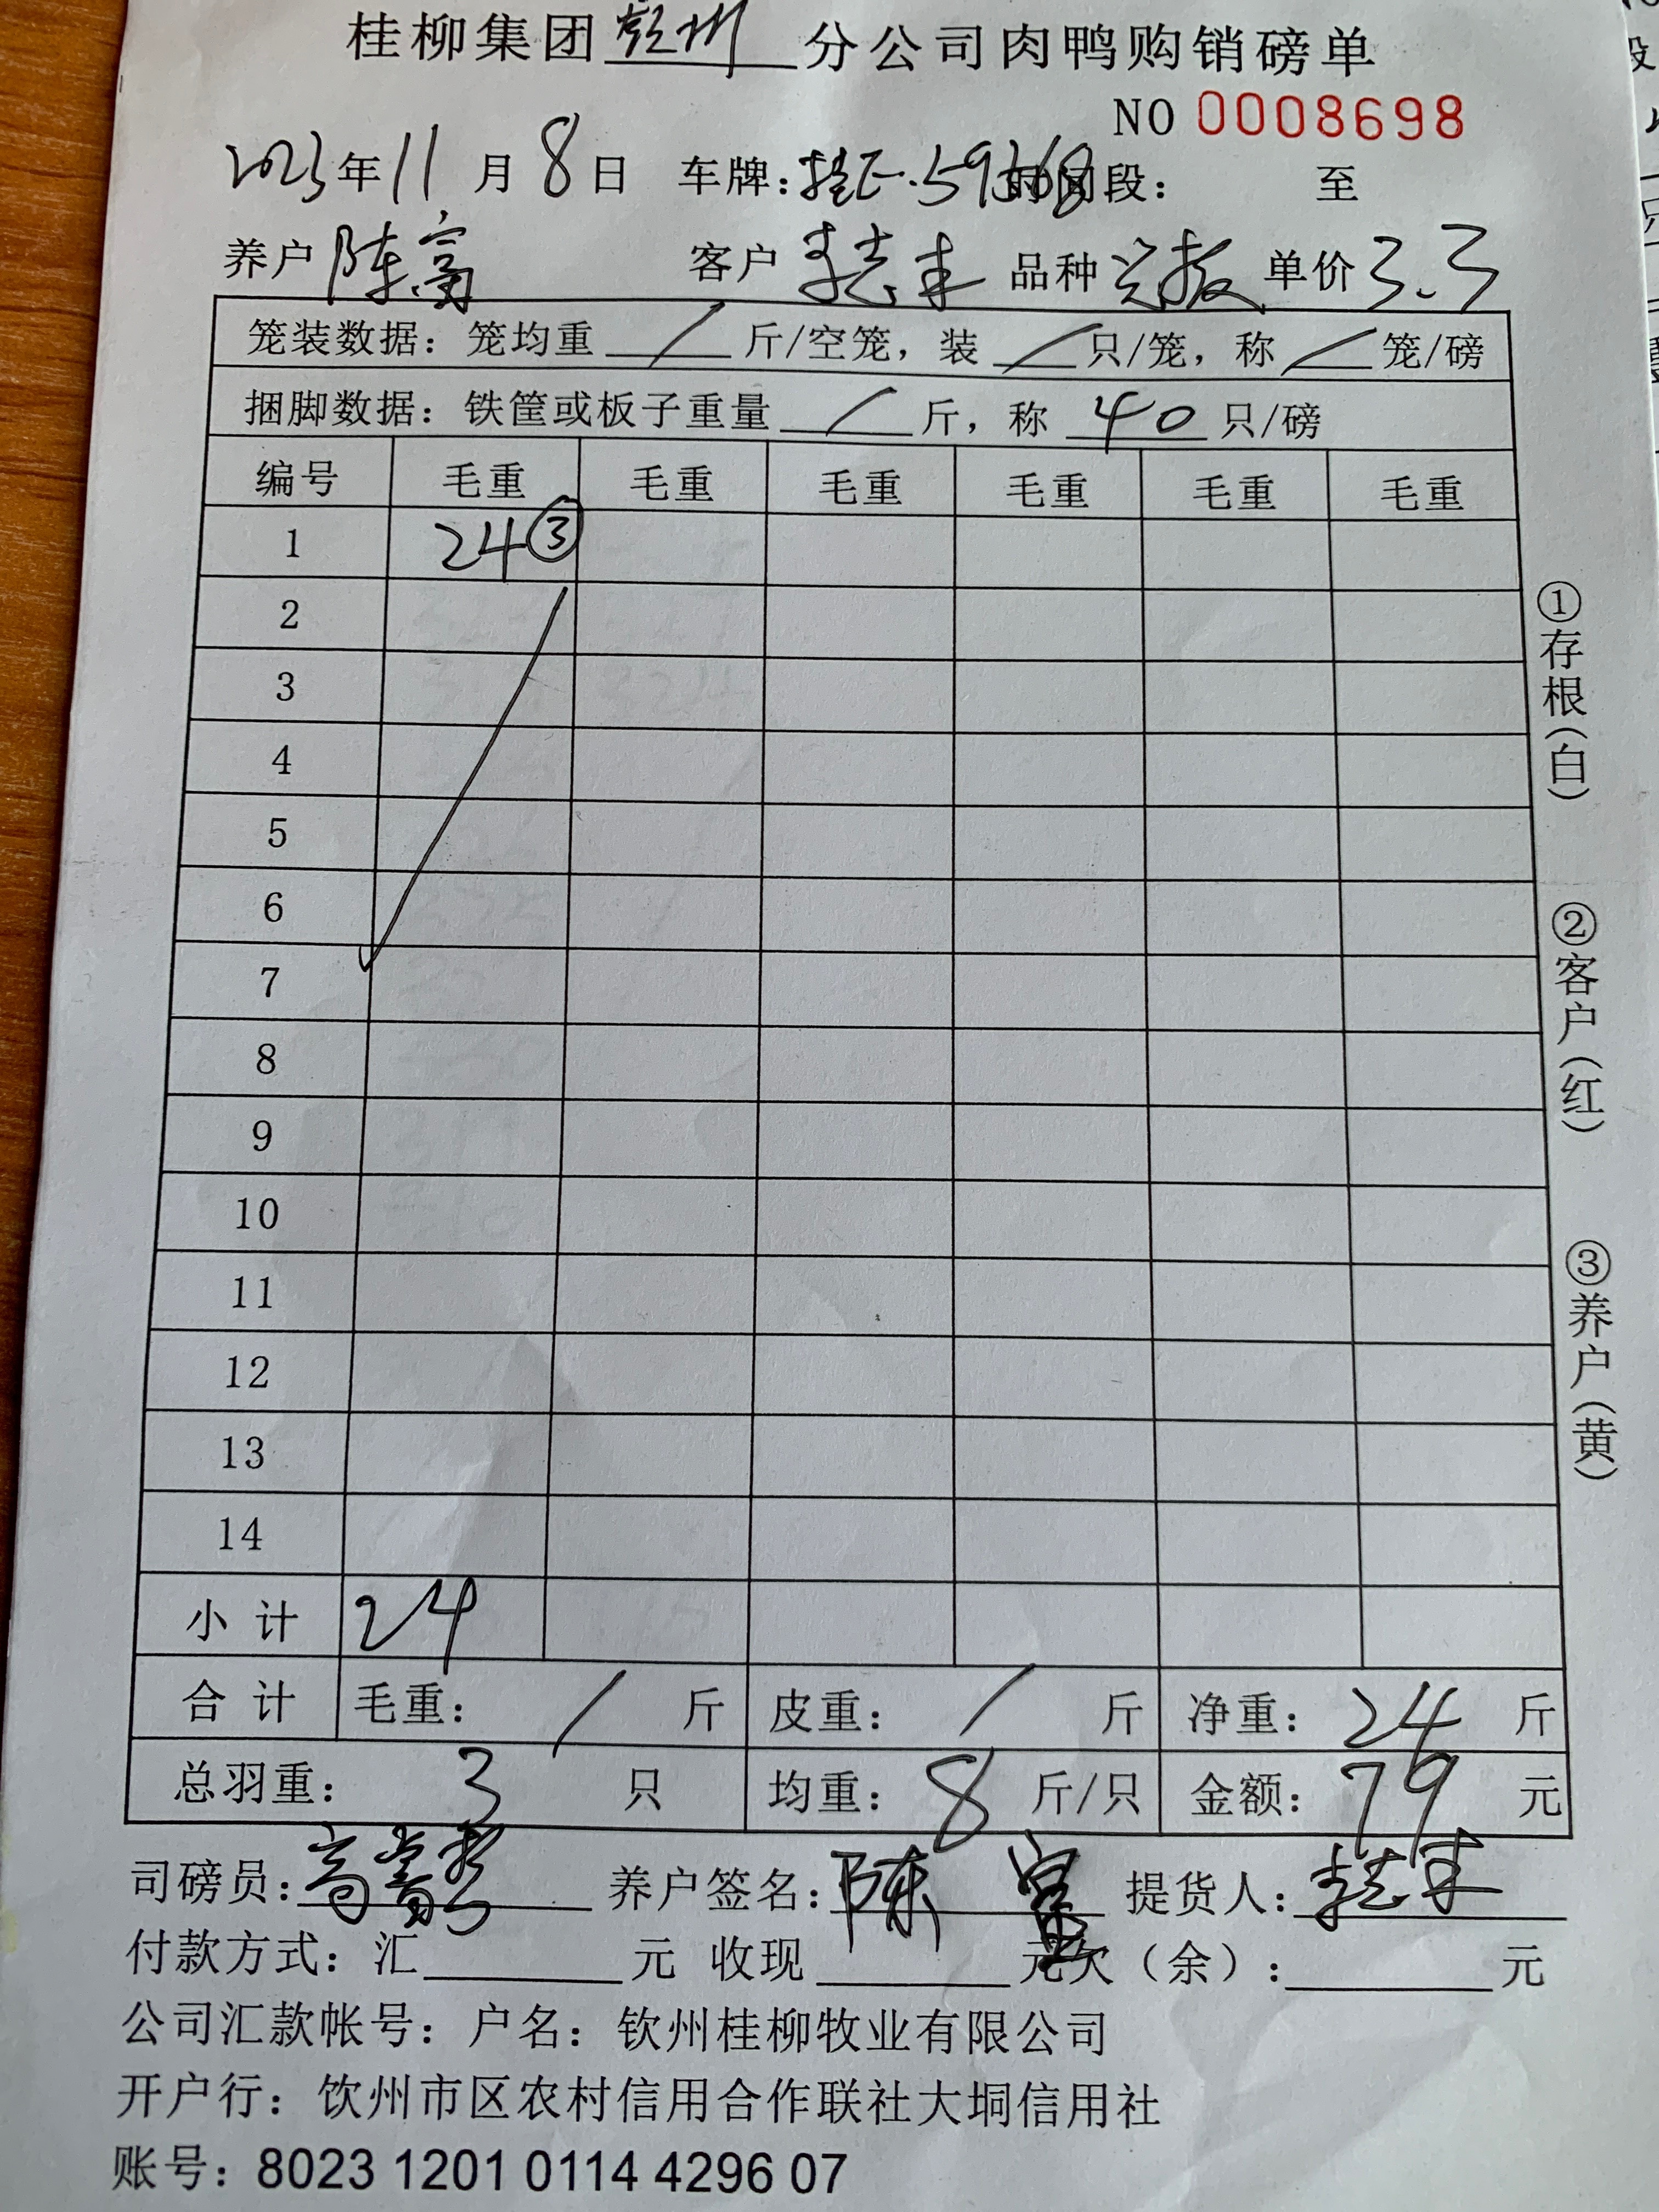 桂柳集团 分公司肉鸭购销磅单
NO 0008698
2023年11月8日 车牌: 59368 时间段: 至
养户 陈富 客户 品种 单价 3.3
笼装数据: 笼均重 / 斤/空笼, 装 / 只/笼, 称 / 笼/磅
捆脚数据: 铁筐或板子重量 / 斤, 称 40 只/磅
编号 毛重 毛重 毛重 毛重 毛重 毛重
1 24 ③
2
3
4
5
6
7
8
9
10
11
12
13
14
小计 24
合计 毛重: / 斤 皮重: / 斤 净重: 24 斤
总羽重: 3 只 均重: 8 斤/只 金额: 79 元
司磅员: 养户签名: 陈富 提货人:
付款方式: 汇 元 收现 元欠(余): 元
公司汇款帐号: 户名: 钦州桂柳牧业有限公司
开户行: 饮州市区农村信用合作联社大垌信用社
账号: 8023 1201 0114 4296 07
①存根(白)
②客户(红)
③养户(黄)